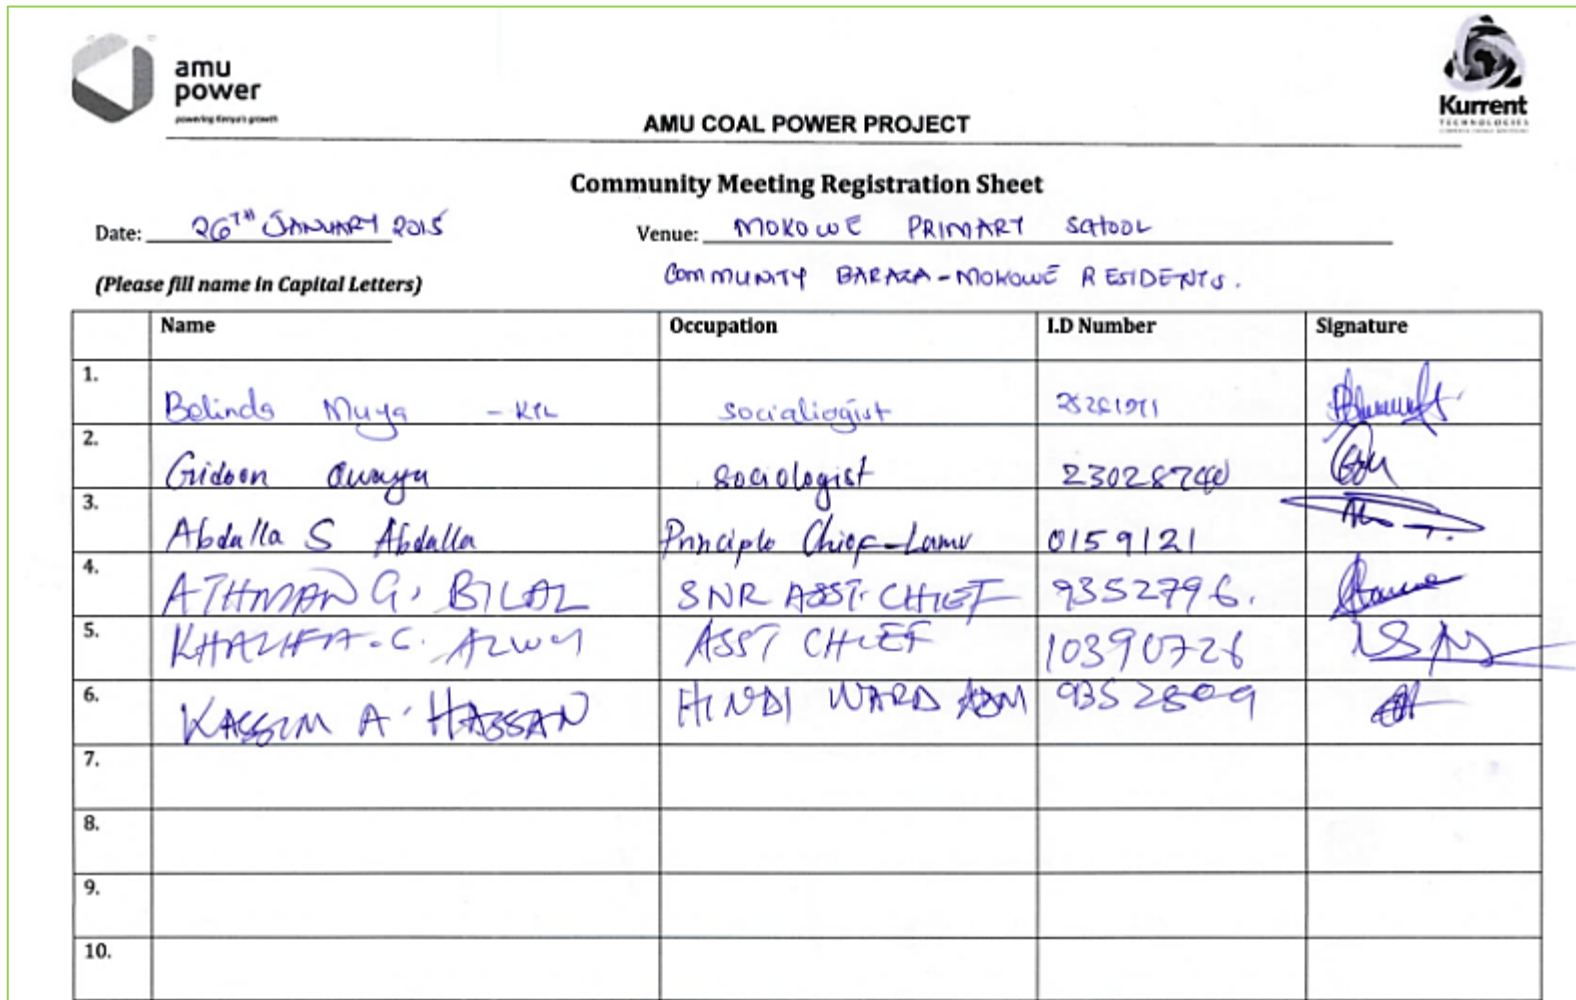 amu
power
powering Kenya's growth
Kurrent
TECHNOLOGIES
AMU COAL POWER PROJECT
Community Meeting Registration Sheet
Date: 26TH JANUARY 2015 Venue: MOKOWE PRIMARY SCHOOL
(Please fill name in Capital Letters) COMMUNITY BARAZA - MOKOWE RESIDENTS.
Name Occupation I.D Number Signature
1. Belinda Muya - KTL socialiogist
2. Gideon Owaga sociologist 23028740
3. Abdalla S Abdalla Principle Chief-Lamu 0159121
4. ATHMAN G. BILAL SNR ASST. CHIEF 9352796.
5. KHALIFA . C. ALWY ASST CHIEF 10390726
6. KASSIM A. HASSAN HINDI WARD ADM 9352809
7.
8.
9.
10.